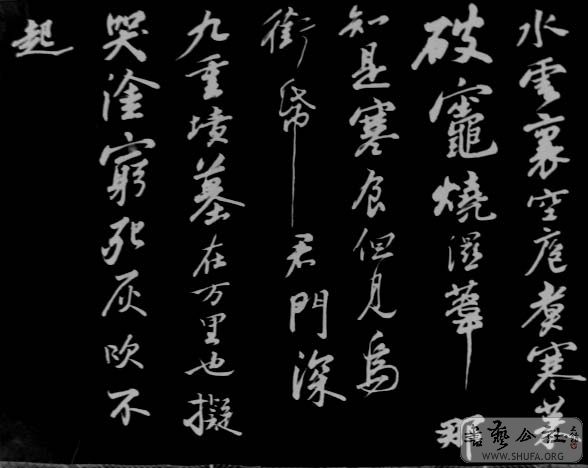 水雲裏空庖煮寒菜
破竈燒溼葦那
知是寒食但見烏
銜帋君門深
九重墳墓在万里也擬
哭塗窮死灰吹不
起
書藝公社
WWW.SHUFA.ORG